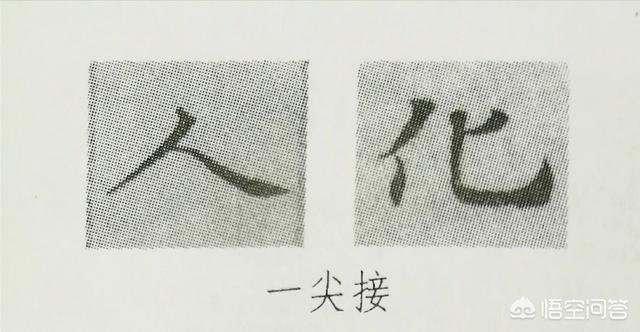 人 化
一尖接
悟空问答